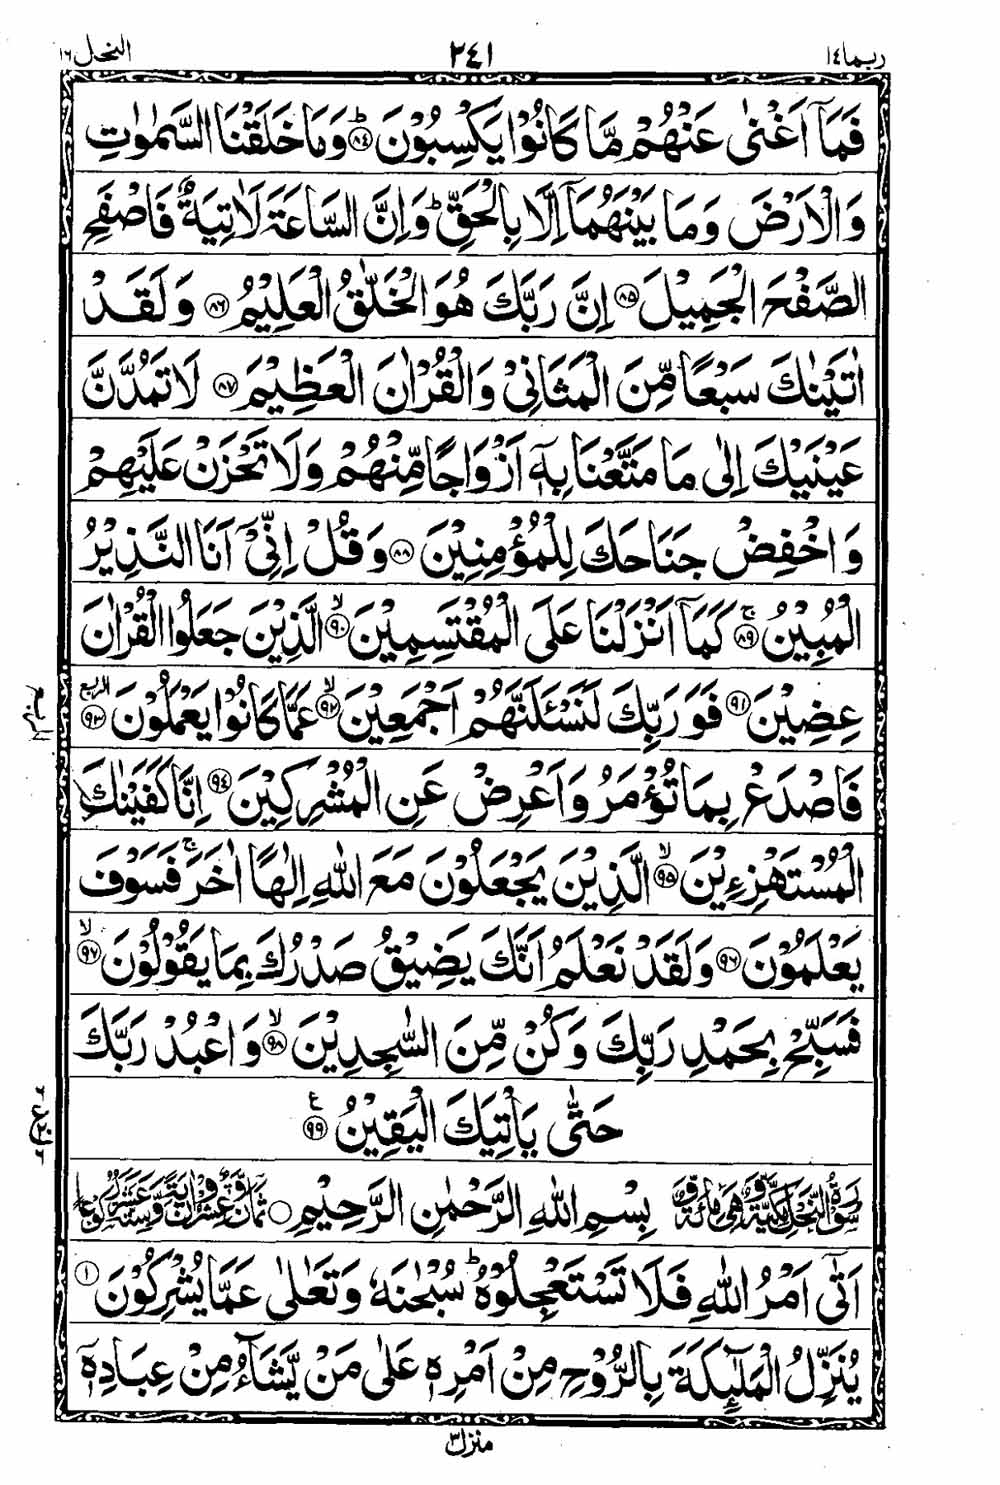 ربما ١٤
٢٤١
النحل ١٦
فَمَاۤ اَغْنٰى عَنْهُمْ مَّا كَانُوْا يَكْسِبُوْنَ ؕ ﴿۸۴﴾ وَمَا خَلَقْنَا السَّمٰوٰتِ
وَالْاَرْضَ وَمَا بَيْنَهُمَاۤ اِلَّا بِالْحَقِّ ؕ وَاِنَّ السَّاعَةَ لَاٰتِيَةٌ فَاصْفَحِ
الصَّفْحَ الْجَمِيْلَ ﴿۸۵﴾ اِنَّ رَبَّكَ هُوَ الْخَلّٰقُ الْعَلِيْمُ ﴿۸۶﴾ وَلَقَدْ
اٰتَيْنٰكَ سَبْعًا مِّنَ الْمَثَانِيْ وَالْقُرْاٰنَ الْعَظِيْمَ ﴿۸۷﴾ لَا تَمُدَّنَّ
عَيْنَيْكَ اِلٰى مَا مَتَّعْنَا بِهٖۤ اَزْوَاجًا مِّنْهُمْ وَلَا تَحْزَنْ عَلَيْهِمْ
وَاخْفِضْ جَنَاحَكَ لِلْمُؤْمِنِيْنَ ﴿۸۸﴾ وَقُلْ اِنِّيْۤ اَنَا النَّذِيْرُ
الْمُبِيْنُ ۚ ﴿۸۹﴾ كَمَاۤ اَنْزَلْنَا عَلَى الْمُقْتَسِمِيْنَ ۙ ﴿۹۰﴾ الَّذِيْنَ جَعَلُوا الْقُرْاٰنَ
عِضِيْنَ ﴿۹۱﴾ فَوَرَبِّكَ لَنَسْـَٔلَنَّهُمْ اَجْمَعِيْنَ ۙ ﴿۹۲﴾ عَمَّا كَانُوْا يَعْمَلُوْنَ ﴿۹۳﴾ الربع
فَاصْدَعْ بِمَا تُؤْمَرُ وَاَعْرِضْ عَنِ الْمُشْرِكِيْنَ ﴿۹۴﴾ اِنَّا كَفَيْنٰكَ
الْمُسْتَهْزِءِيْنَ ۙ ﴿۹۵﴾ الَّذِيْنَ يَجْعَلُوْنَ مَعَ اللّٰهِ اِلٰهًا اٰخَرَ ۚ فَسَوْفَ
يَعْلَمُوْنَ ﴿۹۶﴾ وَلَقَدْ نَعْلَمُ اَنَّكَ يَضِيْقُ صَدْرُكَ بِمَا يَقُوْلُوْنَ ۙ ﴿۹۷﴾
فَسَبِّحْ بِحَمْدِ رَبِّكَ وَكُنْ مِّنَ السّٰجِدِيْنَ ۙ ﴿۹۸﴾ وَاعْبُدْ رَبَّكَ
حَتّٰى يَاْتِيَكَ الْيَقِيْنُ ﴿۹۹﴾ ع
سُوْرَةُ النَّحْلِ مَكِّيَّةٌ وَّهِيَ مِائَةٌ وَّ بِسْمِ اللّٰهِ الرَّحْمٰنِ الرَّحِيْمِ ثَمَانٌ وَّعِشْرُوْنَ اٰيَةً وَّسِتَّةَ عَشَرَ رُكُوْعًا
اَتٰۤى اَمْرُ اللّٰهِ فَلَا تَسْتَعْجِلُوْهُ ؕ سُبْحٰنَهٗ وَتَعٰلٰى عَمَّا يُشْرِكُوْنَ ﴿۱﴾
يُنَزِّلُ الْمَلٰٓئِكَةَ بِالرُّوْحِ مِنْ اَمْرِهٖ عَلٰى مَنْ يَّشَآءُ مِنْ عِبَادِهٖۤ
منزل ٣